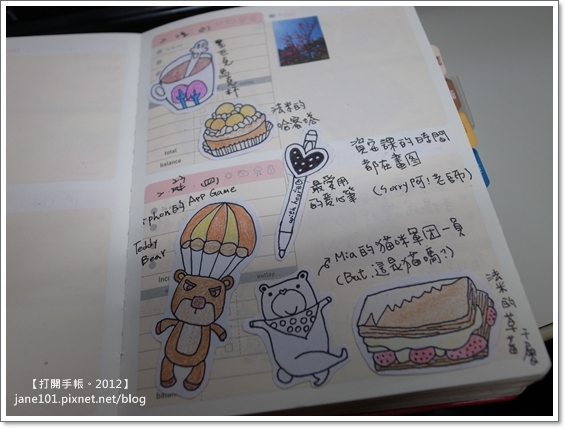 星巴克馬克杯
法米的
哈蜜塔
total
balance
iphon的App Game
Teddy
Bear
with heart
最愛用
的愛心筆
資宓課的時間
都在畫圖
(Sorry 阿!老師)
Mia的貓咪軍團一員
(But 這是貓嗎?)
法米的草莓千層
balance
【打開手帳。2012】
jane101.pixnet.net/blog